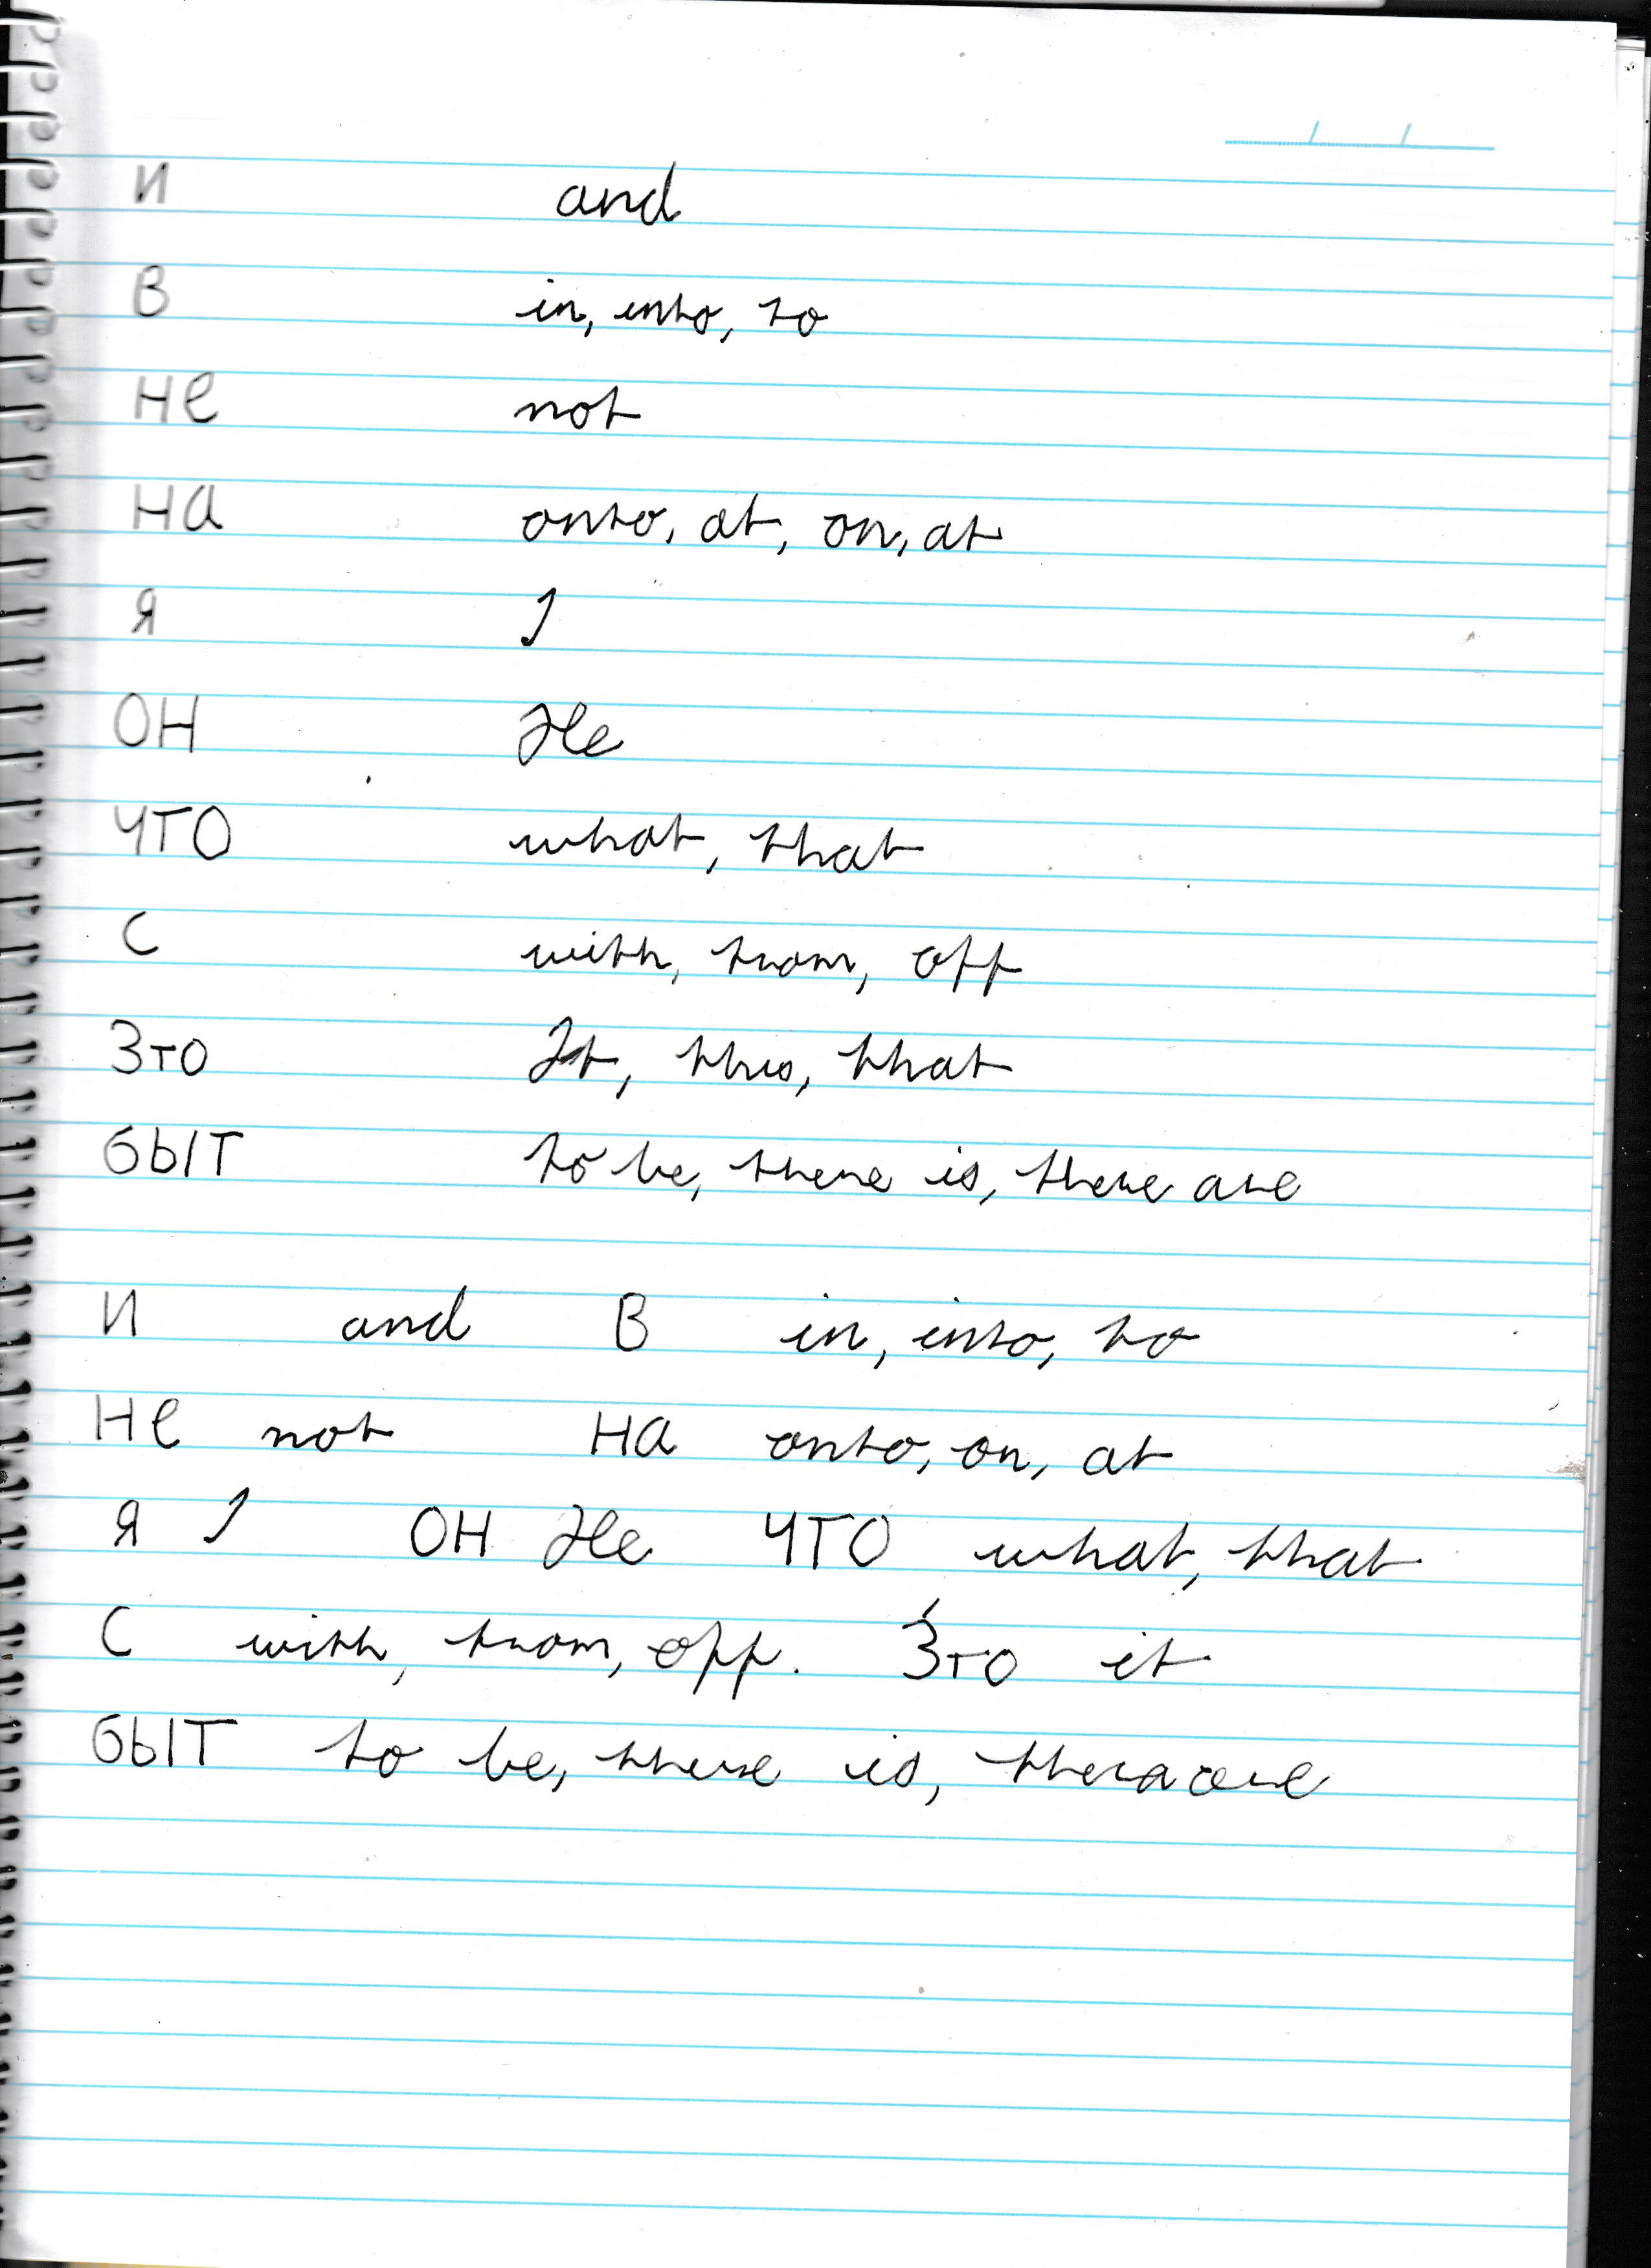 и and
В in, into, to
не not
на onto, at, on, at
я I
ОН He
ЧТО what, that
С with, from, off
Зто It, this, that
быт to be, there is, there are
И and В in, into, to
Не not На onto, on, at
Я I ОН He ЧТО what, that
С with, from, off. З́то it
быт to be, there is, there are